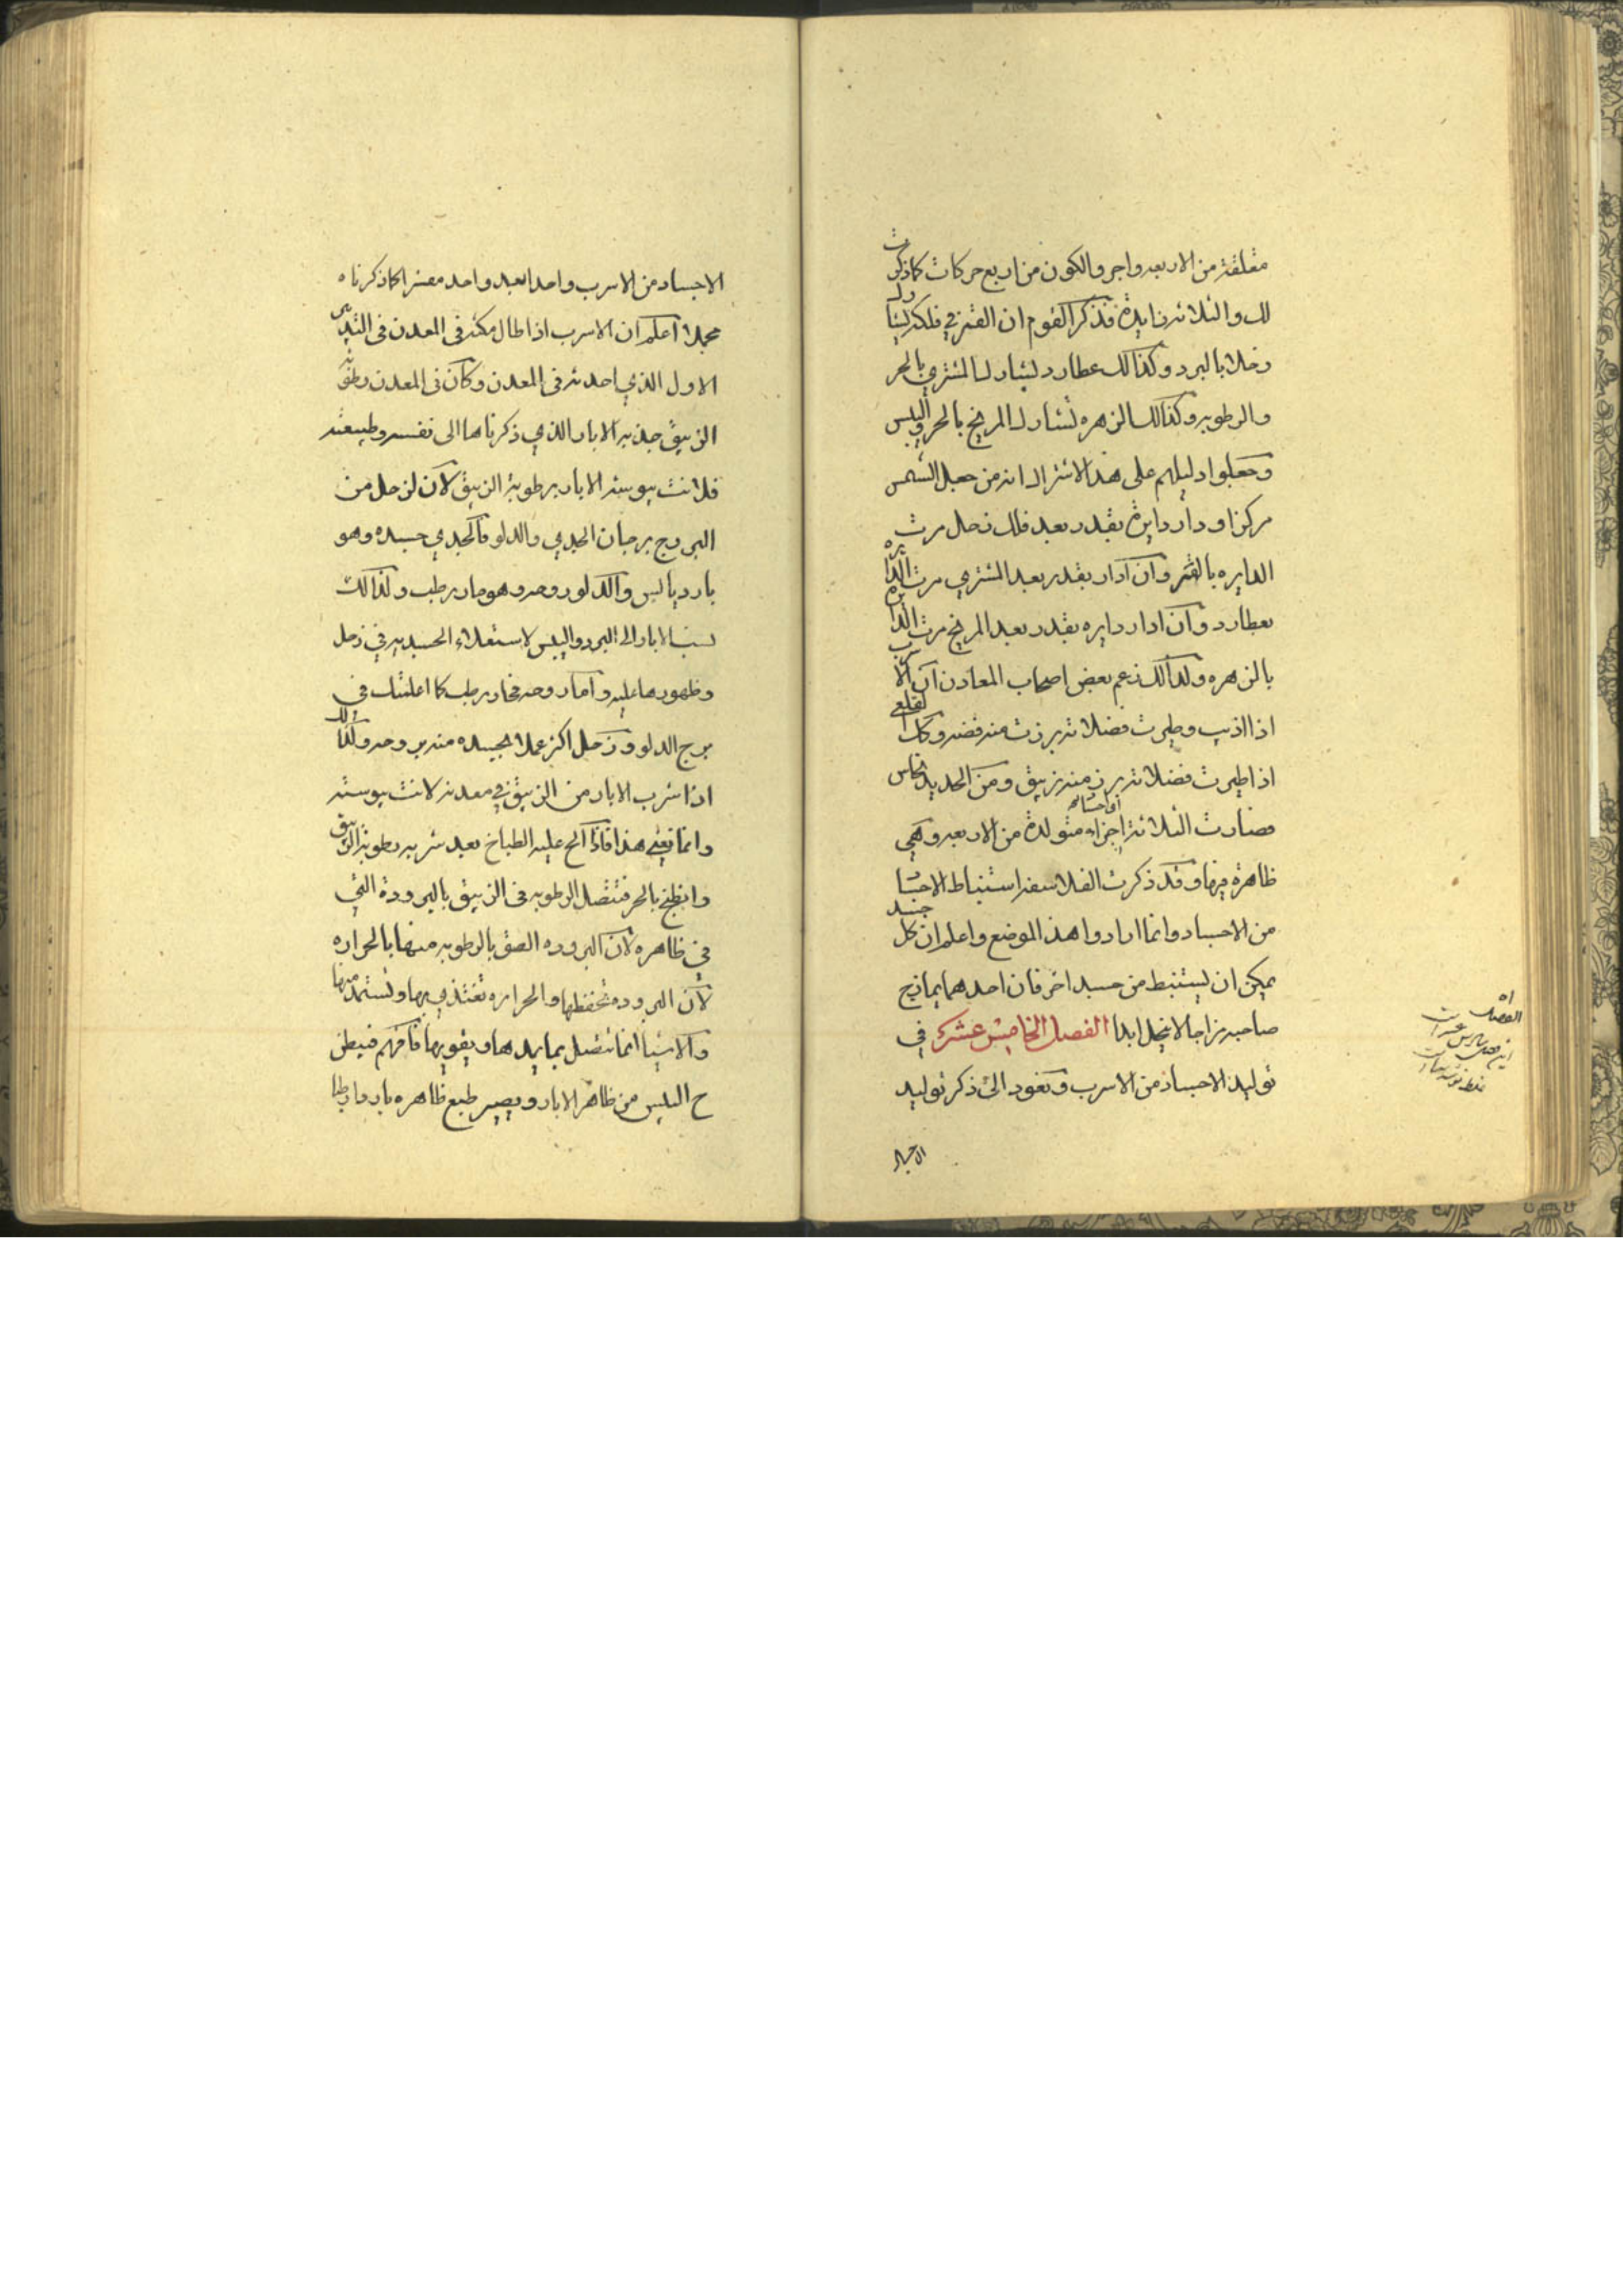 متعلقة من الاربعه واجر والكون من اربع حركات كما ذكرت
لك والثلاثه زايدة فذكر القوم ان القمر في فلكه يشارك
زحلا بالبرد وكذالك عطارد يشارك المشتري بالحر
والرطوبه وكذالك الزهره تشارك المريخ بالحر واليبس
وجعلوا دليلهم على هذا الاشتراك انه من جعل الشمس
مركزا ودار دايرة بقدر بعد فلك زحل مرت
الدايره بالقمر وان ادار بقدر بعد المشتري مرت الدايره
بعطارد وان ادار دايره بقدر بعد المريخ مرت الدايره
بالزهره ولذالك زعم بعض اصحاب المعادن ان الاسرب
اذا اذيب وطيرت فضلاته برزت منه فضه وكذا القلعي
اذا طيرت فضلاته برز منه زيبق ومن الحديد نحاس
فصارت الثلاثة اجزاء متولدة من الاربعه وهي
ظاهرة فيها وقد ذكرت الفلاسفه استنباط الاجسا
من الاجساد وانما ارادوا هذا الموضع واعلم ان كل جسد
يمكن ان يستنبط من جسد اخر فان احدهما يمازج
صاحبه مزاجا لا ينحل ابدا الفصل الخامس عشر في
توليد الاجساد من الاسرب ونعود الى ذكر توليد
الاجساد من الاسرب واحدا بعد واحد مفسرا كما ذكرناه
مجملا اعلم ان الاسرب اذا طال مكثه في المعدن في التدبير
الاول الذي احدثه في المعدن وكان في المعدن رطوبة
الزيبق جذبه الابار الذي ذكرناها الى نفسه وطبيعته
فلانت يبوسة الابار برطوبة الزيبق لان لزحل من
البروج برجان الجدي والدلو فالجدي جسده وهو
بارد يابس والدلو روحه وهو حار رطب ولذالك
نسب الابار الى البرد واليبس لاستعلاء الجسديه في زحل
وظهورها عليه واما روحه فحاره رطبه كما اعلمتك في
برج الدلو وزحل اكثر عملا بجسده منه بروحه وكذالك
اذا شرب الابار من الزيبق في معدنه لانت يبوسته
وانما نعني هذا فاذا الح عليه الطباخ بعد شربه رطوبة الزيبق
وانطبخ بالحر فتتصل الرطوبه في الزيبق بالبرودة التي
في ظاهره لان البروده الصق بالرطوبه منها بالحراره
لان البروده تحفظها والحراره تغتذي بها وتستمد منها
والاشيا انما تتصل بما يمدها ويقويها فافهم فيبطن
ح اليبس من ظاهر الابار ويصير طبع ظاهره باردا رطبا